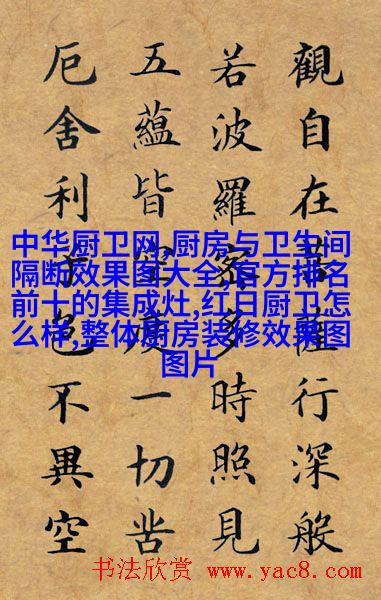 觀自在菩薩行深般
若波羅蜜多時照見
五蘊皆空度一切苦
厄舍利子色不異空
中华厨卫网,厨房与卫生间
隔断效果图大全,官方排名
前十的集成灶,红日厨卫怎
么样,整体厨房装修效果图
图片
书法欣赏 www.yac8.com